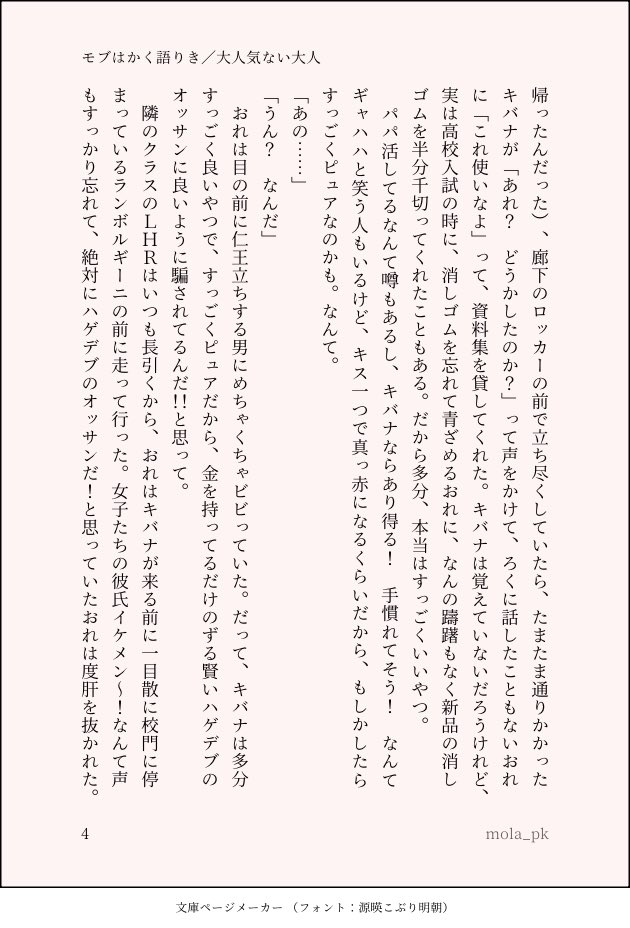 モブはかく語りき／大人気ない大人
帰ったんだった）、廊下のロッカーの前で立ち尽くしていたら、たまたま通りかかった
キバナが「あれ？　どうかしたのか？」って声をかけて、ろくに話したこともないおれ
に「これ使いなよ」って、資料集を貸してくれた。キバナは覚えていないだろうけれど、
実は高校入試の時に、消しゴムを忘れて青ざめるおれに、なんの躊躇もなく新品の消し
ゴムを半分千切ってくれたこともある。だから多分、本当はすっごくいいやつ。
　パパ活してるなんて噂もあるし、キバナならあり得る！　手慣れてそう！　なんて
ギャハハと笑う人もいるけど、キス一つで真っ赤になるくらいだから、もしかしたら
すっごくピュアなのかも。なんて。
「あの……」
「うん？　なんだ」
　おれは目の前に仁王立ちする男にめちゃくちゃビビっていた。だって、キバナは多分
すっごく良いやつで、すっごくピュアだから、金を持ってるだけのずる賢いハゲデブの
オッサンに良いように騙されてるんだ!!と思って。
　隣のクラスのＬＨＲはいつも長引くから、おれはキバナが来る前に一目散に校門に停
まっているランボルギーニの前に走って行った。女子たちの彼氏イケメン～！なんて声
もすっかり忘れて、絶対にハゲデブのオッサンだ！と思っていたおれは度肝を抜かれた。
4
mola_pk
文庫ページメーカー （フォント：源暎こぶり明朝）